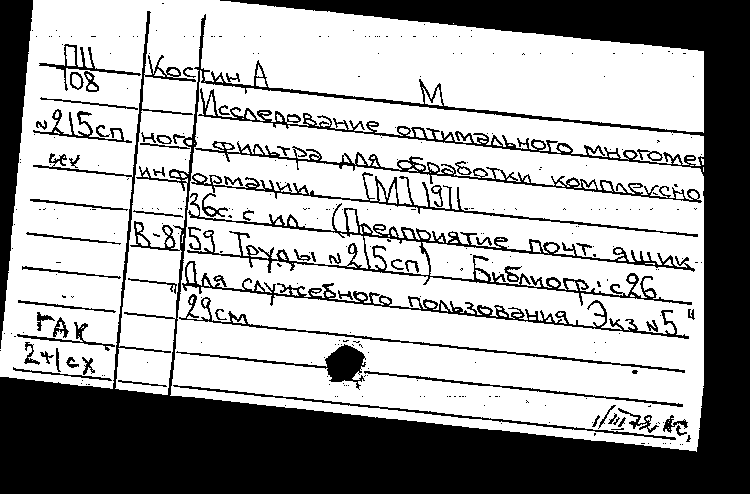 П11
108
Костин, А
М
Исследование оптимального многомер
№215сп ного фильтра для обработки комплексно
информации. [М] 1971
36с. с ил. (Предприятие почт. ящик
R-8759. Труды №215сп) Библиогр.: с26.
"Для служебного пользования. Экз №5"
29см
ГАК
2+1сх